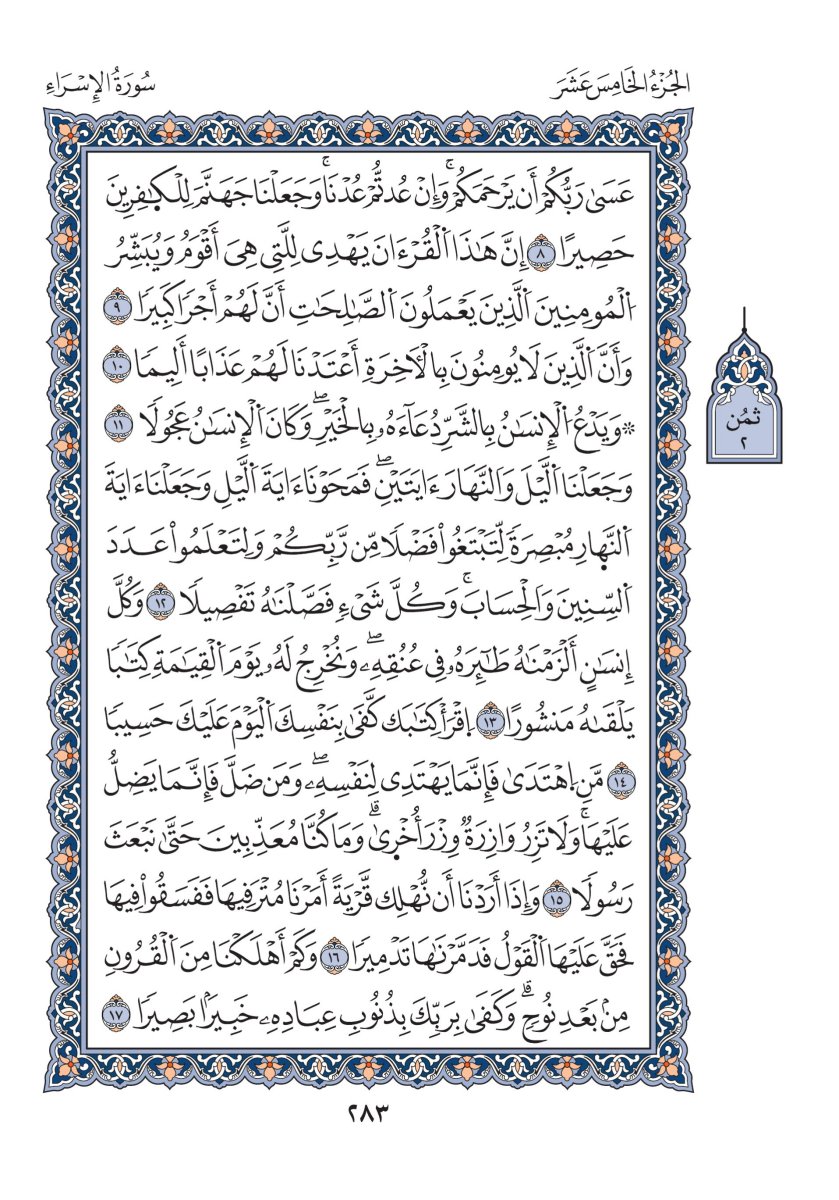 الجُزْءُ الخَامِسَ عَشَرَ
سُورَةُ الإِسْرَاءِ
عَسَىٰ رَبُّكُمْ أَن يَرْحَمَكُمْۚ وَإِنْ عُدتُّمْ عُدْنَاۚ وَجَعَلْنَا جَهَنَّمَ لِلْكٰ۪فِرِينَ
حَصِيرًا ٨ إِنَّ هَٰذَا اَ۬لْقُرْءَانَ يَهْدِى لِلَّتِى هِىَ أَقْوَمُ وَيُبَشِّرُ
اُ۬لْمُومِنِينَ اَ۬لَّذِينَ يَعْمَلُونَ اَ۬لصَّٰلِحَٰتِ أَنَّ لَهُمْ أَجْرًا كَبِيرًا ٩
وَأَنَّ اَ۬لَّذِينَ لَا يُومِنُونَ بِالْأٓخِرَةِ أَعْتَدْنَا لَهُمْ عَذَابًا أَلِيمًا ١٠
۞وَيَدْعُ اُ۬لْإِنسَٰنُ بِالشَّرِّ دُعَآءَهُۥ بِالْخَيْرِۖ وَكَانَ اَ۬لْإِنسَٰنُ عَجُولًا ١١
وَجَعَلْنَا اَ۬لَّيْلَ وَالنَّهَارَ ءَايَتَيْنِۖ فَمَحَوْنَا ءَايَةَ اَ۬لَّيْلِ وَجَعَلْنَا ءَايَةَ
اَ۬لنَّه۪ارِ مُبْصِرَةً لِّتَبْتَغُواْ فَضْلًا مِّن رَّبِّكُمْ وَلِتَعْلَمُواْ عَدَدَ
اَ۬لسِّنِينَ وَالْحِسَابَۚ وَكُلَّ شَىْءٍ فَصَّلْنَٰهُ تَفْصِيلًا ١٢ وَكُلَّ
إِنسَٰنٍ أَلْزَمْنَٰهُ طَٰٓئِرَهُۥ فِى عُنُقِهِۦۖ وَنُخْرِجُ لَهُۥ يَوْمَ اَ۬لْقِيَٰمَةِ كِتَٰبًا
يَلْقَىٰهُ مَنشُورًا ١٣ اِ۪قْرَأْ كِتَٰبَك كَّفَىٰ بِنَفْسِكَ اَ۬لْيَوْمَ عَلَيْكَ حَسِيبًا
١٤ مَّنِ اِ۪هْتَدَىٰ فَإِنَّمَا يَهْتَدِى لِنَفْسِهِۦۖ وَمَن ضَلَّ فَإِنَّمَا يَضِلُّ
عَلَيْهَاۚ وَلَا تَزِرُ وَازِرَةٌ وِزْرَ أُخْر۪ىٰۗ وَمَا كُنَّا مُعَذِّبِينَ حَتَّىٰ نَبْعَثَ
رَسُولًا ١٥ وَإِذَا أَرَدْنَا أَن نُّهْلِك قَّرْيَةً أَمَرْنَا مُتْرَفِيهَا فَفَسَقُواْ فِيهَا
فَحَقَّ عَلَيْهَا اَ۬لْقَوْلُ فَدَمَّرْنَٰهَا تَدْمِيرًا ١٦ وَكَمْ أَهْلَكْنَا مِنَ اَ۬لْقُرُونِ
مِنۢ بَعْدِ نُوحٍۗ وَكَفَىٰ بِرَبِّكَ بِذُنُوبِ عِبَادِهِۦ خَبِيرَۢا بَصِيرًا ١٧
ثُمُن
٢
٢٨٣